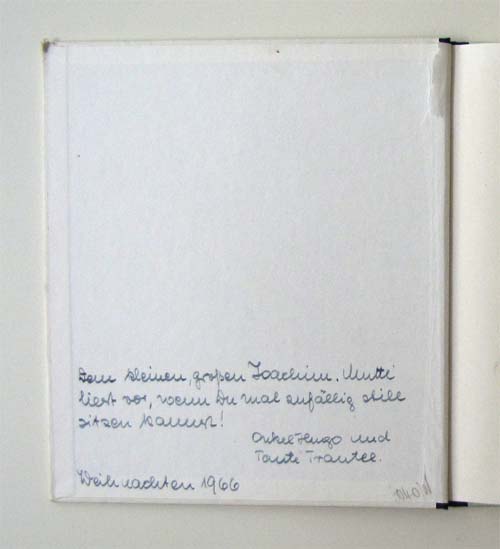 Dem kleinen, großen Joachim. Mutti
liest vor, wenn Du mal zufällig still
sitzen kannst!
Onkel Hugo und
Tante Trautel.
Weihnachten 1966